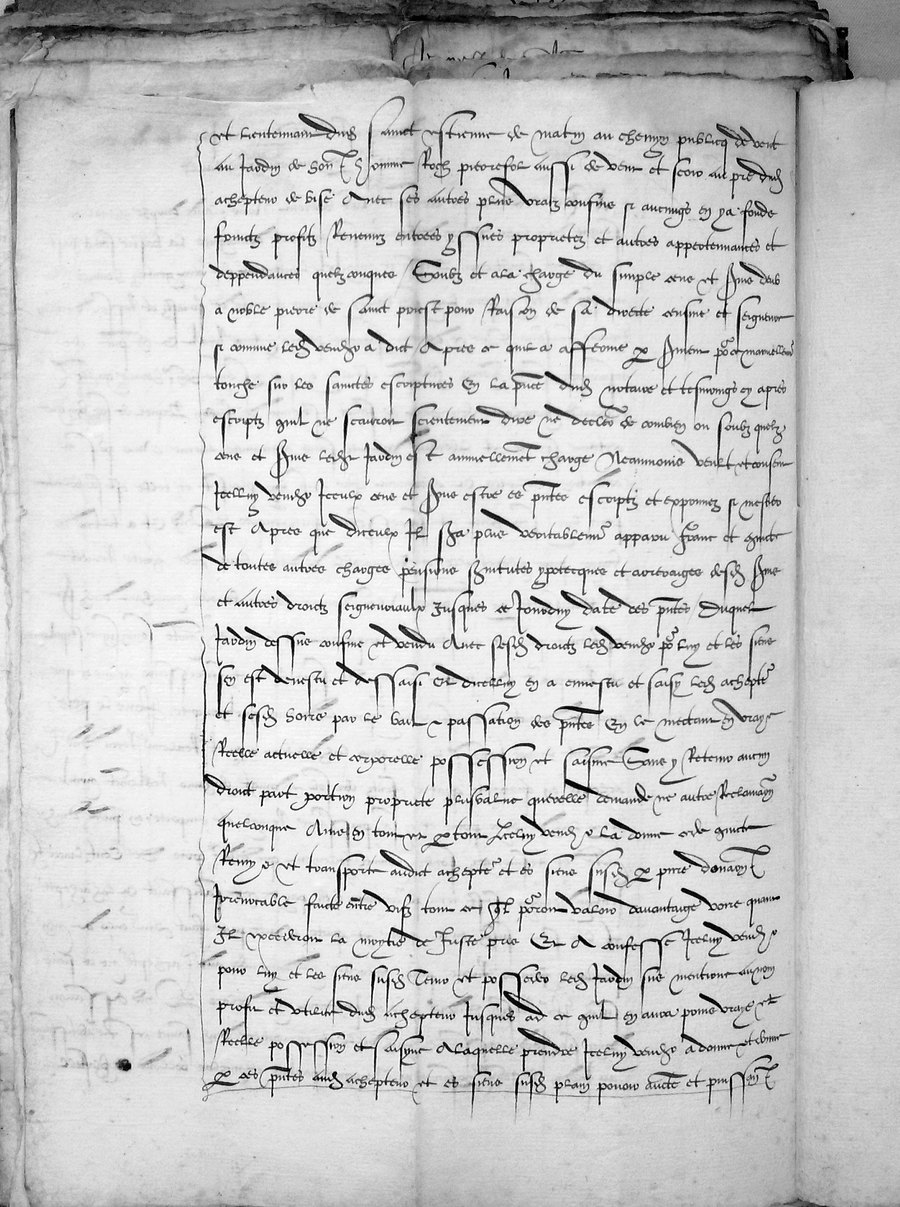 et lieutenant dudit sainct estienne de matin au chemyn publicq de vent
au jardin de honnorable homme Roch pierrefol aussi de vent et soir au pre dudit
achepteur de bise Avec ses autres plus vrays confins si aucungs en y a fonds
fruictz profitz Revenuz entrees yssues proprietez et autres appertennances et
deppendances quelzconques Soubz et a la charge du simple cens et servis deub
a noble pierre de sainct priest pour Raison de sa directe censive et seigneurie
si comme ledit vendeur a dict Apres ce quil a afferme par serment pour ce manuellement
touche sur les sainctes escriptures En la presence dudit notaire et tesmoings cy apres
escriptz quil ne scauroit scientement dire ne declairer de combien ou soubz quelz
cens et servis ledit jardin est annuellement charge Neanmoins veult et consent
Icelluy vendeur Iceulx cens et servis estre es presentes escriptz et expponnez si mestier
est Apres que diceulx Il sera plus veritablement apparu franc et quicte
de toutes autres charges pensions servitutes ypotecques et arreraiges desdits servis
et autres droictz seigneuriaulx Jusques ce jourdhuy date des presentes Duquel
jardin dessus confine et vendu Avec sesdits droictz ledit vendeur pour luy et les siens
sen est devestu et dessaisi Et dicelluy en a envestu et saisy ledit achepteur
et sesdits hoirs par le bail et passation des presentes En le mectant en vraye
Reelle actuelle et corporelle possession et saisine Sans y Retenir aucun
droict part portion propriete plusvalue querelle demande ne autre Reclamation
quelconque Ains en tout et par tout Icelluy vendeur la donne cede quicte
Remys et transporte audict achepteur et es siens susdits par pure donation
Irrevocable faicte entre vifz tout ce quil pourroit valoir davantaige voire quant
Il excederoit la moytie de juste pris Et A confesse Icelluy vendeur
pour luy et les siens susdits Tenir et posseder ledit jardin sus mentionne au nom
proffit et utilite dudit achepteur Jusques ad ce quil en aura prins vraye et
Reelle possession et saisyne A laquelle prendre Icelluy vendeur a donne et donne
par ces presentes audit achepteur et es siens susdits plain pouvoir auctorite et puissance